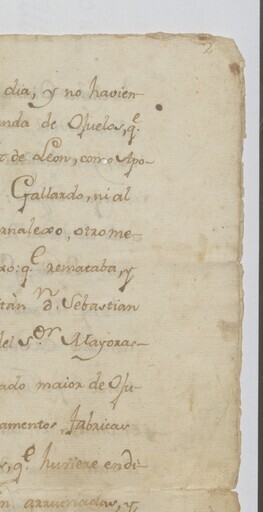 2
dia, y no havien
enda de Ojuelos, q.e
z de Leon, como Apo-
Gallardo, ni al
ornalero, otro me-
ro: q.e remataba, y
itàn n D. Sebastian
del S.or Mayoras-
ado maior de Oju-
amentos, fabricas
s, q.e huviere en di-
n arruinadas, y